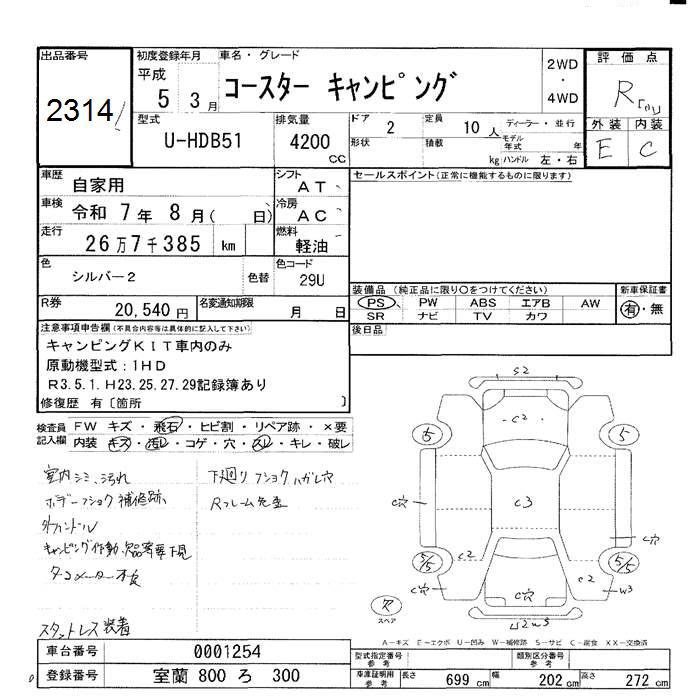 出品番号 初度登録年月 車名・グレード 評価点
2314
平成 5 3月
コースター キャンピング
2WD・4WD
R
外装 内装
E C
型式 U-HDB51
排気量 4200 CC
ドア 2 定員 10人 ディーラー・並行
形状 積載 kg モデル年式 年
ハンドル 左・右
車歴 自家用 シフト AT
セールスポイント(正常に機能するものに限ります)
車検 令和 7年 8月( 日) 冷房 AC
走行 26万7千385 km 燃料 軽油
色 シルバー2 色替 色コード 29U
装備品 (純正品に限り〇をつけてください) 新車保証書
PS PW ABS エアB AW 有・無
SR ナビ TV カワ
R券 20,540円 名変通知期限 月 日
後日品
注意事項申告欄(不具合内容等は具体的に記入して下さい)
キャンピングKIT車内のみ
原動機型式:1HD
R3.5.1.H23.25.27.29記録簿あり
修復歴 有〔箇所 〕
検査員記入欄 FW キズ・飛石・ヒビ割・リペア跡・×要
内装 キズ・汚レ・コゲ・穴・スレ・キレ・破レ
室内シミ、汚れ
ボデーフショク補修跡
外ハンドル
キャンピング作動、欠品等要下見
タコメーター不良
スタットレス装着
下廻りフショクハガレ穴
Rフレーム先
S2
C2
5 5
C穴 C3 C穴
5/5 C2 C2 5/5
C穴 C穴 C2 W3
ス
スペア
U2W3
A-キズ E-エクボ U-凹み W-補修跡 S-サビ C-腐食 XX-交換済
車台番号 0001254
型式指定番号 参考 類別区分番号 参考
登録番号 室蘭 800 ろ 300
車庫証明用 参考 長さ 699cm 幅 202cm 高さ 272cm